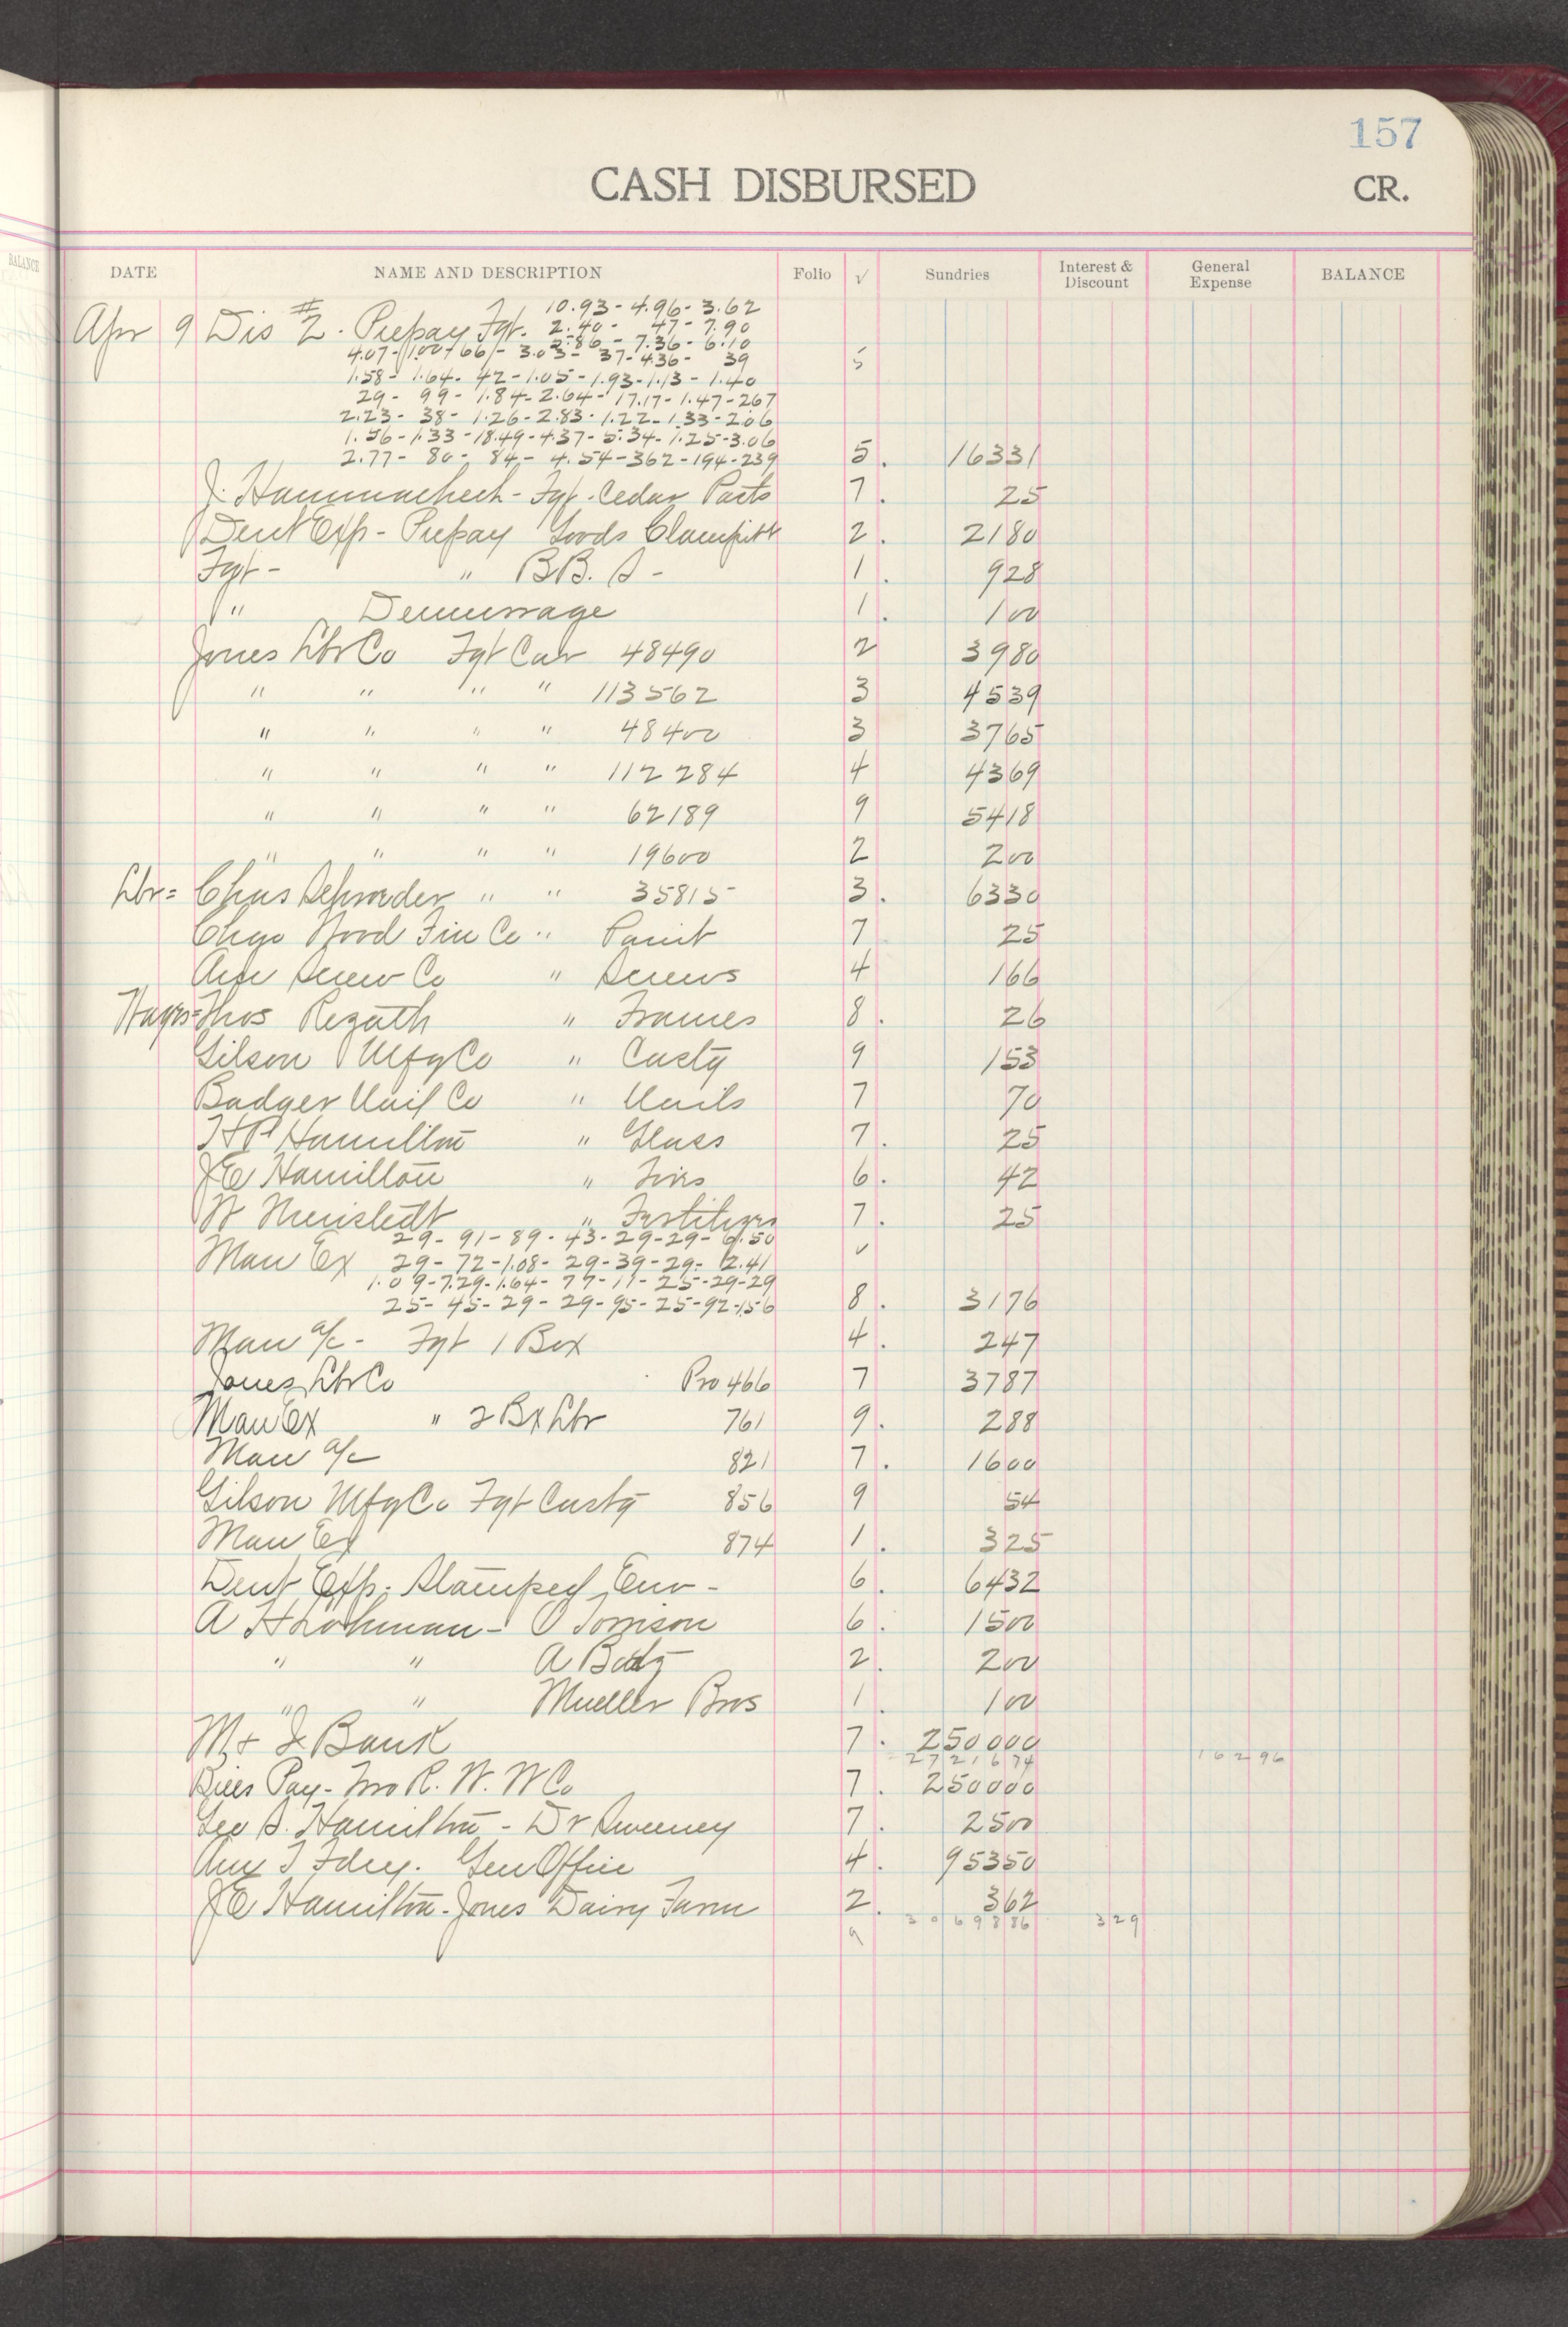 157
CASH DISBURSED CR.
BALANCE
DATE NAME AND DESCRIPTION Folio √ Sundries Interest & Discount General Expense BALANCE
10.93 - 4.96 - 3.62
Apr 9 Dis #2 - Prepay Fgt. 2.40 - 47 - 7.90
2.86 - 7.36 - 6.10
4.07 - 1.00 - 66 - 3.03 - 37 - 4.36 - 39 5
1.58 - 1.64 - 42 - 1.05 - 1.93 - 1.13 - 1.40
29 - 99 - 1.84 - 2.64 - 17.17 - 1.47 - 267
2.23 - 38 - 1.26 - 2.83 - 1.22 - 1.33 - 2.06
1.56 - 1.33 - 18.49 - 4.37 - 5.34 - 1.25 - 3.06
2.77 - 80 - 84 - 4.54 - 362 - 194 - 239 5. 16331
J. - Fgt. Cedar Posts 7. 25
Dent Exp - Prepay Goods 2. 2180
Fgt - " B.B. S - 1. 928
" Demurrage 1. 100
Jones Lbr Co Fgt Car 48490 2 3980
" " " " 113562 3 4539
" " " " 48400 3 3765
" " " " 112284 4 4369
" " " " 62189 9 5418
" " " " 19600 2 200
Lbr = Chas Schroeder " " 35815 3. 6330
Chgo Wood Fin Co " Paint 7 25
Am Screw Co " Screws 4 166
Thos Rezath " Frames 8. 26
Gilson Mfg Co " Castg 9 153
Badger Nail Co " Nails 7 70
H P Hamilton " Glass 7. 25
J E Hamilton " 6. 42
" Fertilizers 7. 25
29 - 91 - 89 - 43 - 29 - 29 - 6.50
Man Ex 29 - 72 - 1.08 - 29 - 39 - 29 - 2.41 √
1.09 - 7.29 - 1.64 - 77 - 11 - 25 - 29 - 29
25 - 45 - 29 - 29 - 95 - 25 - 92 - 1.56 8. 3176
Man a/c - Fgt 1 Box 4. 247
Jones Lbr Co Pro 466 7 3787
Man Ex " 2 Bx Lbr 761 9. 288
Man a/c 821 7. 1600
Gilson Mfg Co Fgt Castg 856 9 54
Man Ex 874 1. 325
Dent Exp. Stamped Env - 6. 6432
A H Lohman - O Torrison 6. 1500
" " A 2. 200
" " Mueller Bros 1. 100
M & S Bank 7. 250000
2721674 16296
Bills Pay - Two R. W. W Co 7. 250000
Geo S. Hamilton - Dr Sweeney 7. 2500
Aug T Fdry. Gen Office 4. 95350
J E Hamilton - Jones Dairy Farm 2. 362
3069886 329
9